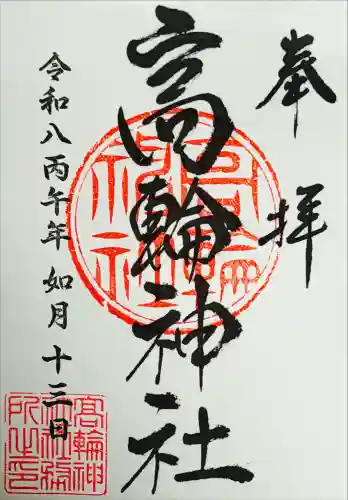 奉拝
高輪神社
令和八丙午年 如月 十三日
高輪神社
高輪神
社社務
所之印